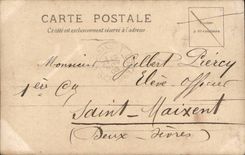 CARTE POSTALE
Ce côté est exclusivement réservé à l'adresse
Monsieur Gilbert Piércy
1ère Cie Elève Officier
Saint-Maixent
(Deux-Sèvres)